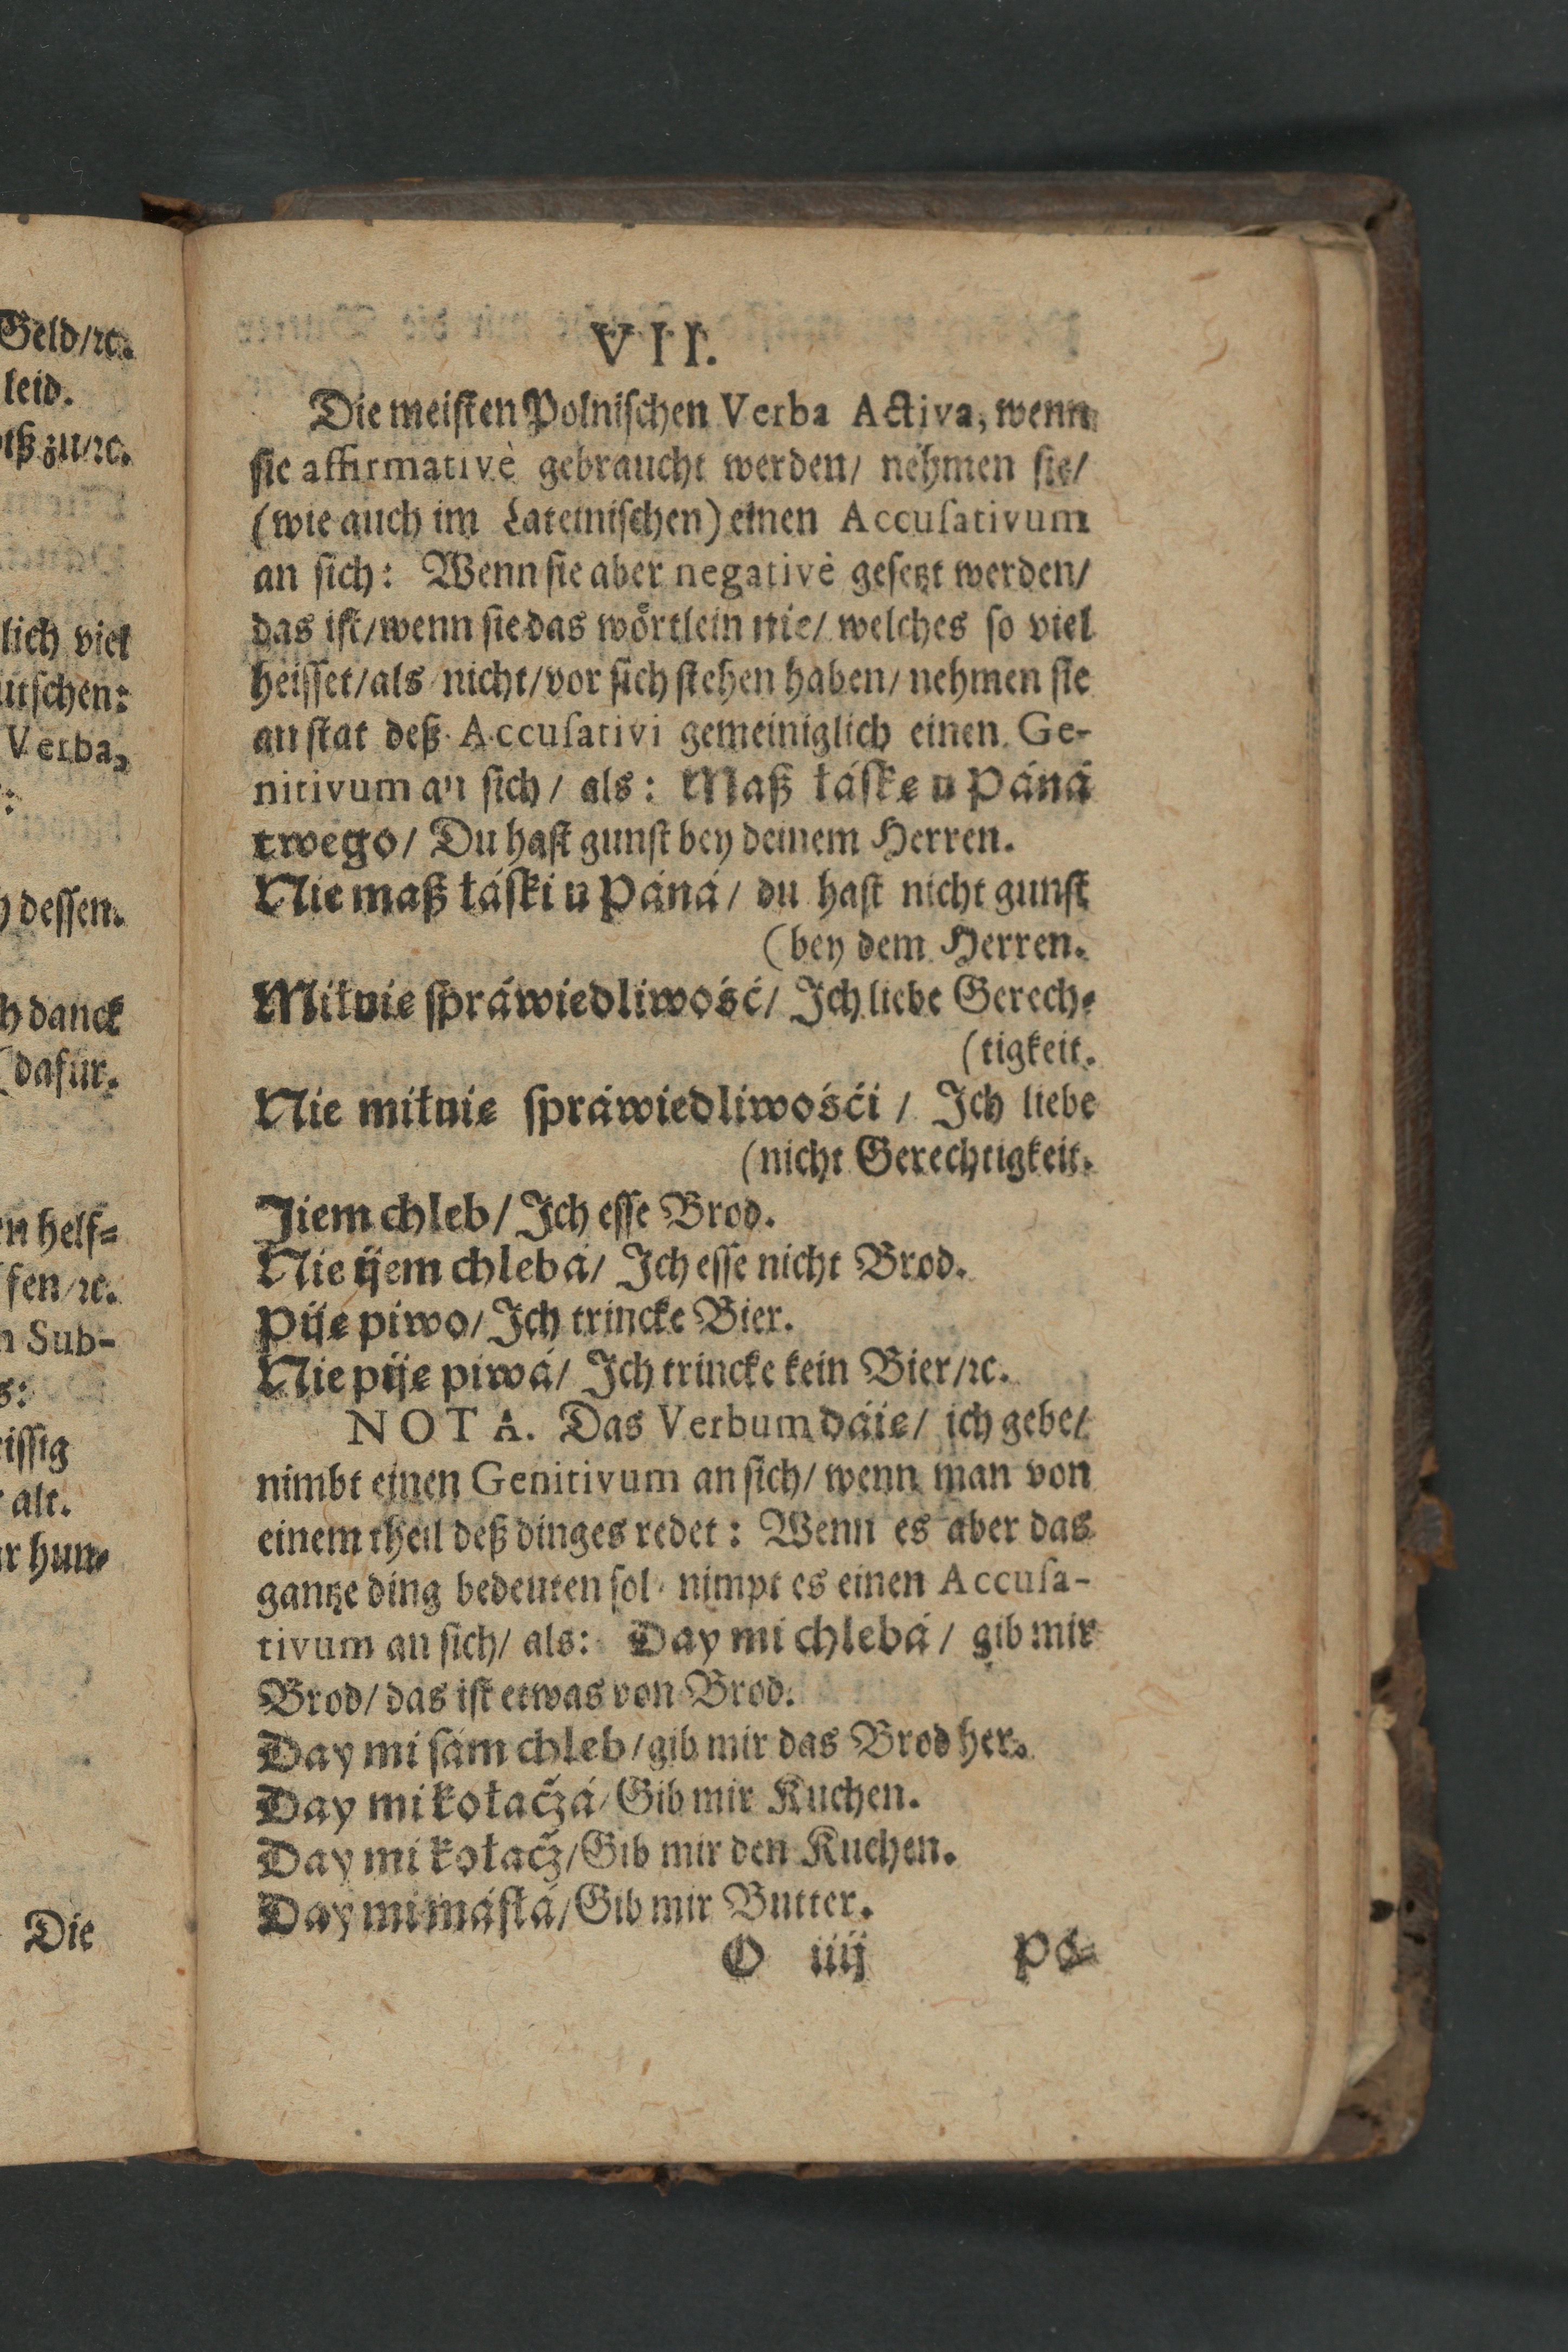 Geld/ꝛc.
leid.
zu/ꝛc.
lich viel
utschen:
Verba,
dessen.
h danck
(dafür.
en helf⸗
fen/ꝛc.
n Sub-
s:
eissig
alt.
hun⸗
Die
VII.
Die meisten Polnischen Verba Activa, wenn
sie affirmativè gebraucht werden/ nehmen sie/
(wie auch im Lateinischen) einen Accusativum
an sich: Wenn sie aber negativè gesetzt werden/
das ist/ wenn sie das wörtlein nie/ welches so viel
heisset/ als nicht/ vor sich stehen haben/ nehmen sie
an stat deß Accusativi gemeiniglich einen Ge-
nitivum an sich/ als: Maß łáskę u Páná
twego/ Du hast gunst bey deinem Herren.
Nie maß łáski u Páná/ du hast nicht gunst
(bey dem Herren.
Miłuię spráwiedliwość/ Ich liebe Gerech⸗
(tigkeit.
Nie miłuię spráwiedliwośći/ Ich liebe
(nicht Gerechtigkeit.
Jiem chleb/ Ich esse Brod.
Nie ijem chlebá/ Ich esse nicht Brod.
Piję piwo/ Ich trincke Bier.
Nie piję piwá/ Ich trincke kein Bier/ꝛc.
NOTA. Das Verbum dáię/ ich gebe/
nimbt einen Genitivum an sich/ wenn man von
einem theil deß dinges redet: Wenn es aber das
gantze ding bedeuten sol/ nimpt es einen Accusa-
tivum an sich/ als: Day mi chlebá/ gib mir
Brod/ das ist etwas von Brod.
Day mi sám chleb/ gib mir das Brod her.
Day mi kołaczá/ Gib mir Kuchen.
Day mi kołacz/ Gib mir den Kuchen.
Day mi másłá/ Gib mir Butter.
O iiij Po⸗